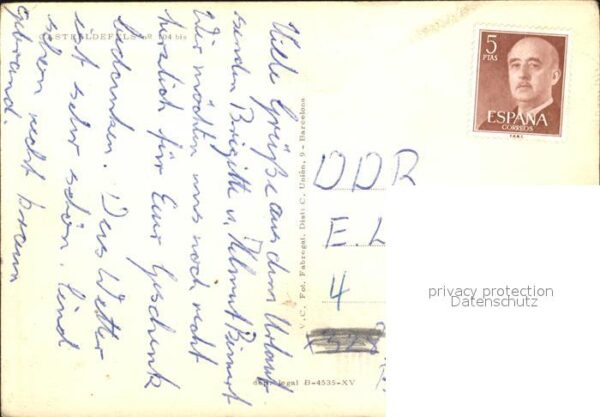 CASTELLDEFELS Nº 104 bis
Viele Grüße aus dem Urlaub
senden Brigitte u. Helmut
Wir möchten uns noch recht
herzlich für Eure Geschenk
bedanken. Das Wetter
ist sehr schön. Sind
schon recht braun
gebrand.
V. C. Fot. Fabregat. Dist: C. Unión, 9 - Barcelona
5
PTAS
ESPAÑA
CORREOS
DDR
E.L
4
legal B-4535-XV
privacy protection
Datenschutz